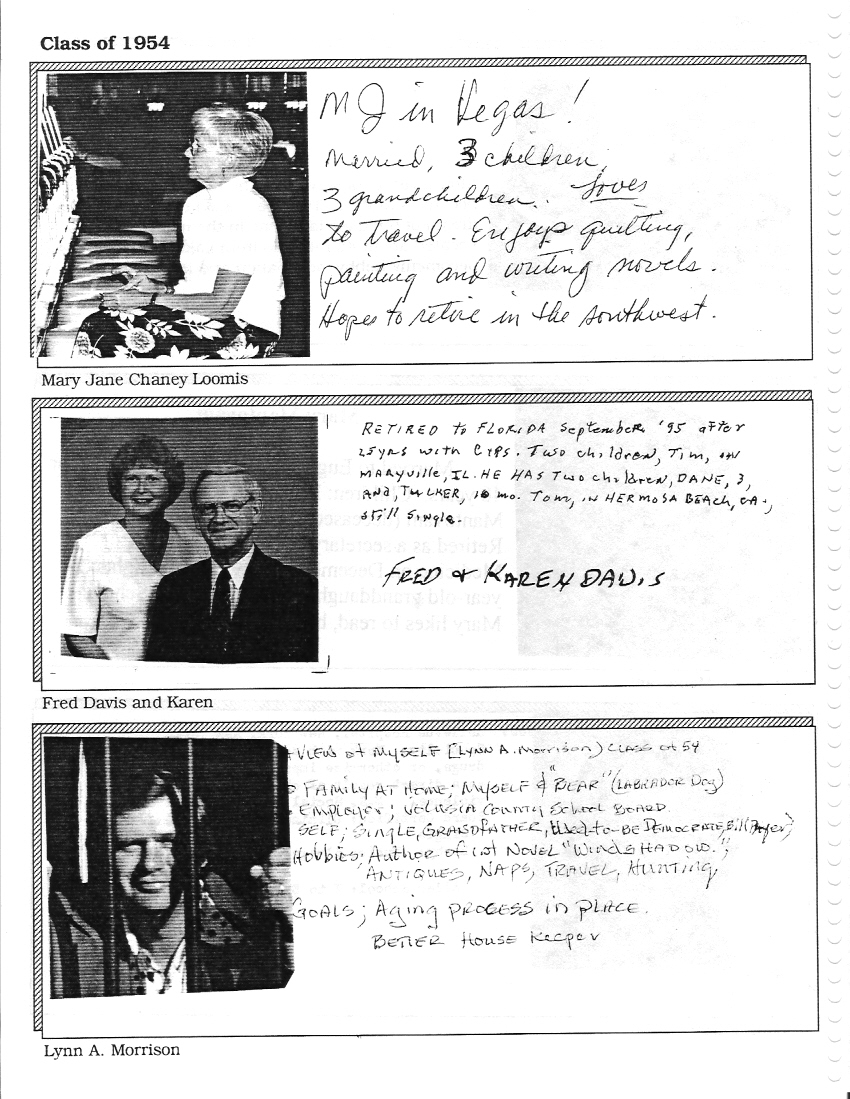 Class of 1954
MJ in Vegas!
Married, 3 children,
3 grandchildren. Loves
to travel. Enjoys quilting,
painting and writing novels.
Hopes to retire in the southwest.
Mary Jane Chaney Loomis
RETIRED to FLORIDA September '95 after
25yrs with CIPS. Two children, Tim, in
MARYVILLE, IL. HE HAS Two children, DANE, 3,
AND, TUCKER, 10 mo. Tom, in HERMOSA BEACH, CA.,
still single.
FRED & KAREN DAVIS
Fred Davis and Karen
VIEWS of MYSELF (LYNN A. Morrison) CLASS of 54
FAMILY AT HOME; MYSELF & "BEAR" (LABRADOR Dog)
EMPLOYER; VOLUSIA COUNTY SCHOOL BOARD.
SELF; SINGLE, GRANDFATHER, Used-to-BE DEMOCRATE, Bill Payer;
HOBBIES; AUTHOR OF 1st NOVEL "WINDSHADOW.",
ANTIQUES, NAPS, TRAVEL, HUNTING,
GOALS; Aging PROCESS in PLACE.
BETTER HOUSE Keeper
Lynn A. Morrison